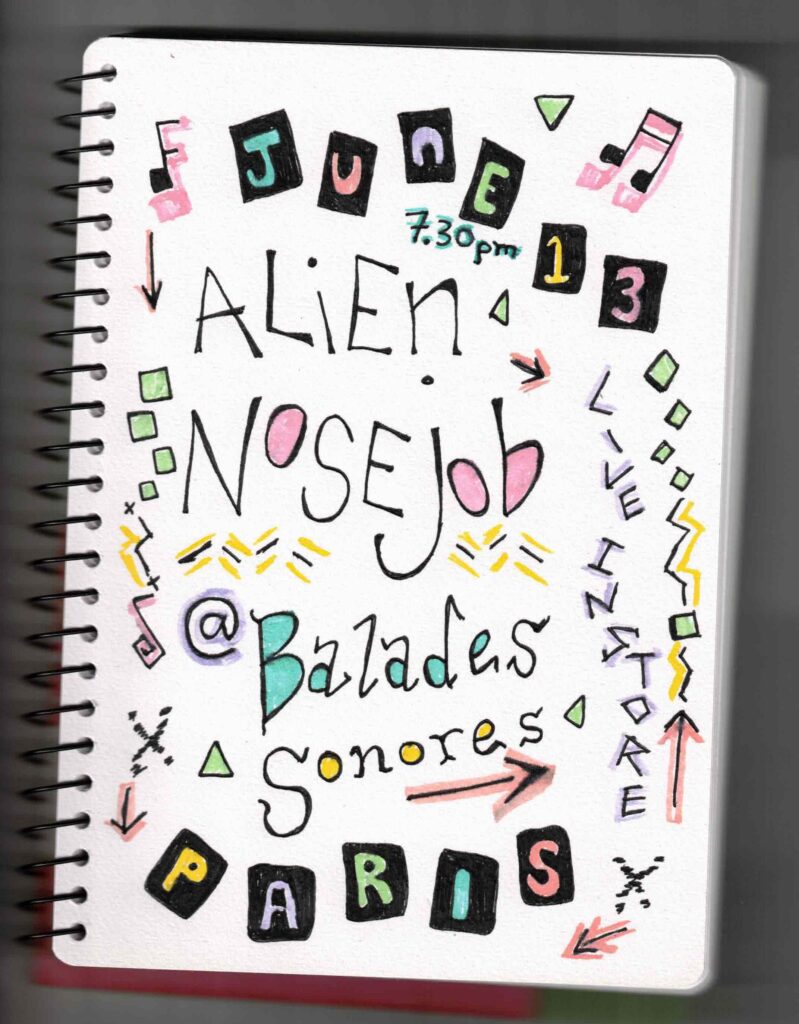 JUNE
13
7.30pm
ALiEn
NOSEJob
LIVE INSTORE
@ Balades
Sonores
PARIS